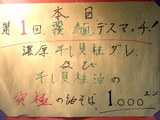 本日
第1回 麺デスマッチ!
干し貝柱ダレ
及び
干し貝柱油の
究極の油そば 1,000エン